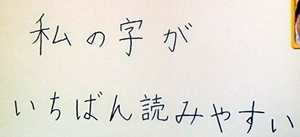 私の字が
いちばん読みやすい